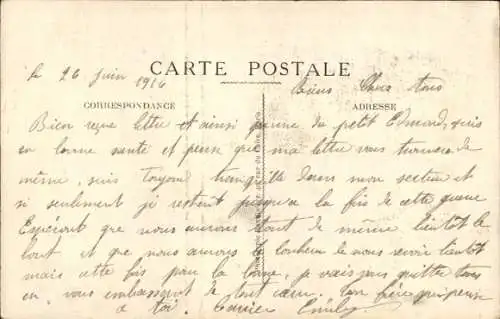 le 26 juin 1916
CARTE POSTALE
Biens Chers tous
CORRESPONDANCE
ADRESSE
Bien reçue lettre et ainsi que du petit Edmond, suis
en bonne santé et pense que ma lettre vous trouvera de
même, suis toujour tranquille dans mon secteur et
si seulement je restait jusqu'a la fin de cette guerre
Espéront que nous aurons tout de même bientôt le
bout et que nous aurons le bonheur de nous revoir bientôt
mais cette fois pour la bonne, je vais vous quitter tous
en vous embrassant de tout cœur. Ton frère qui pense
a toi. Emile